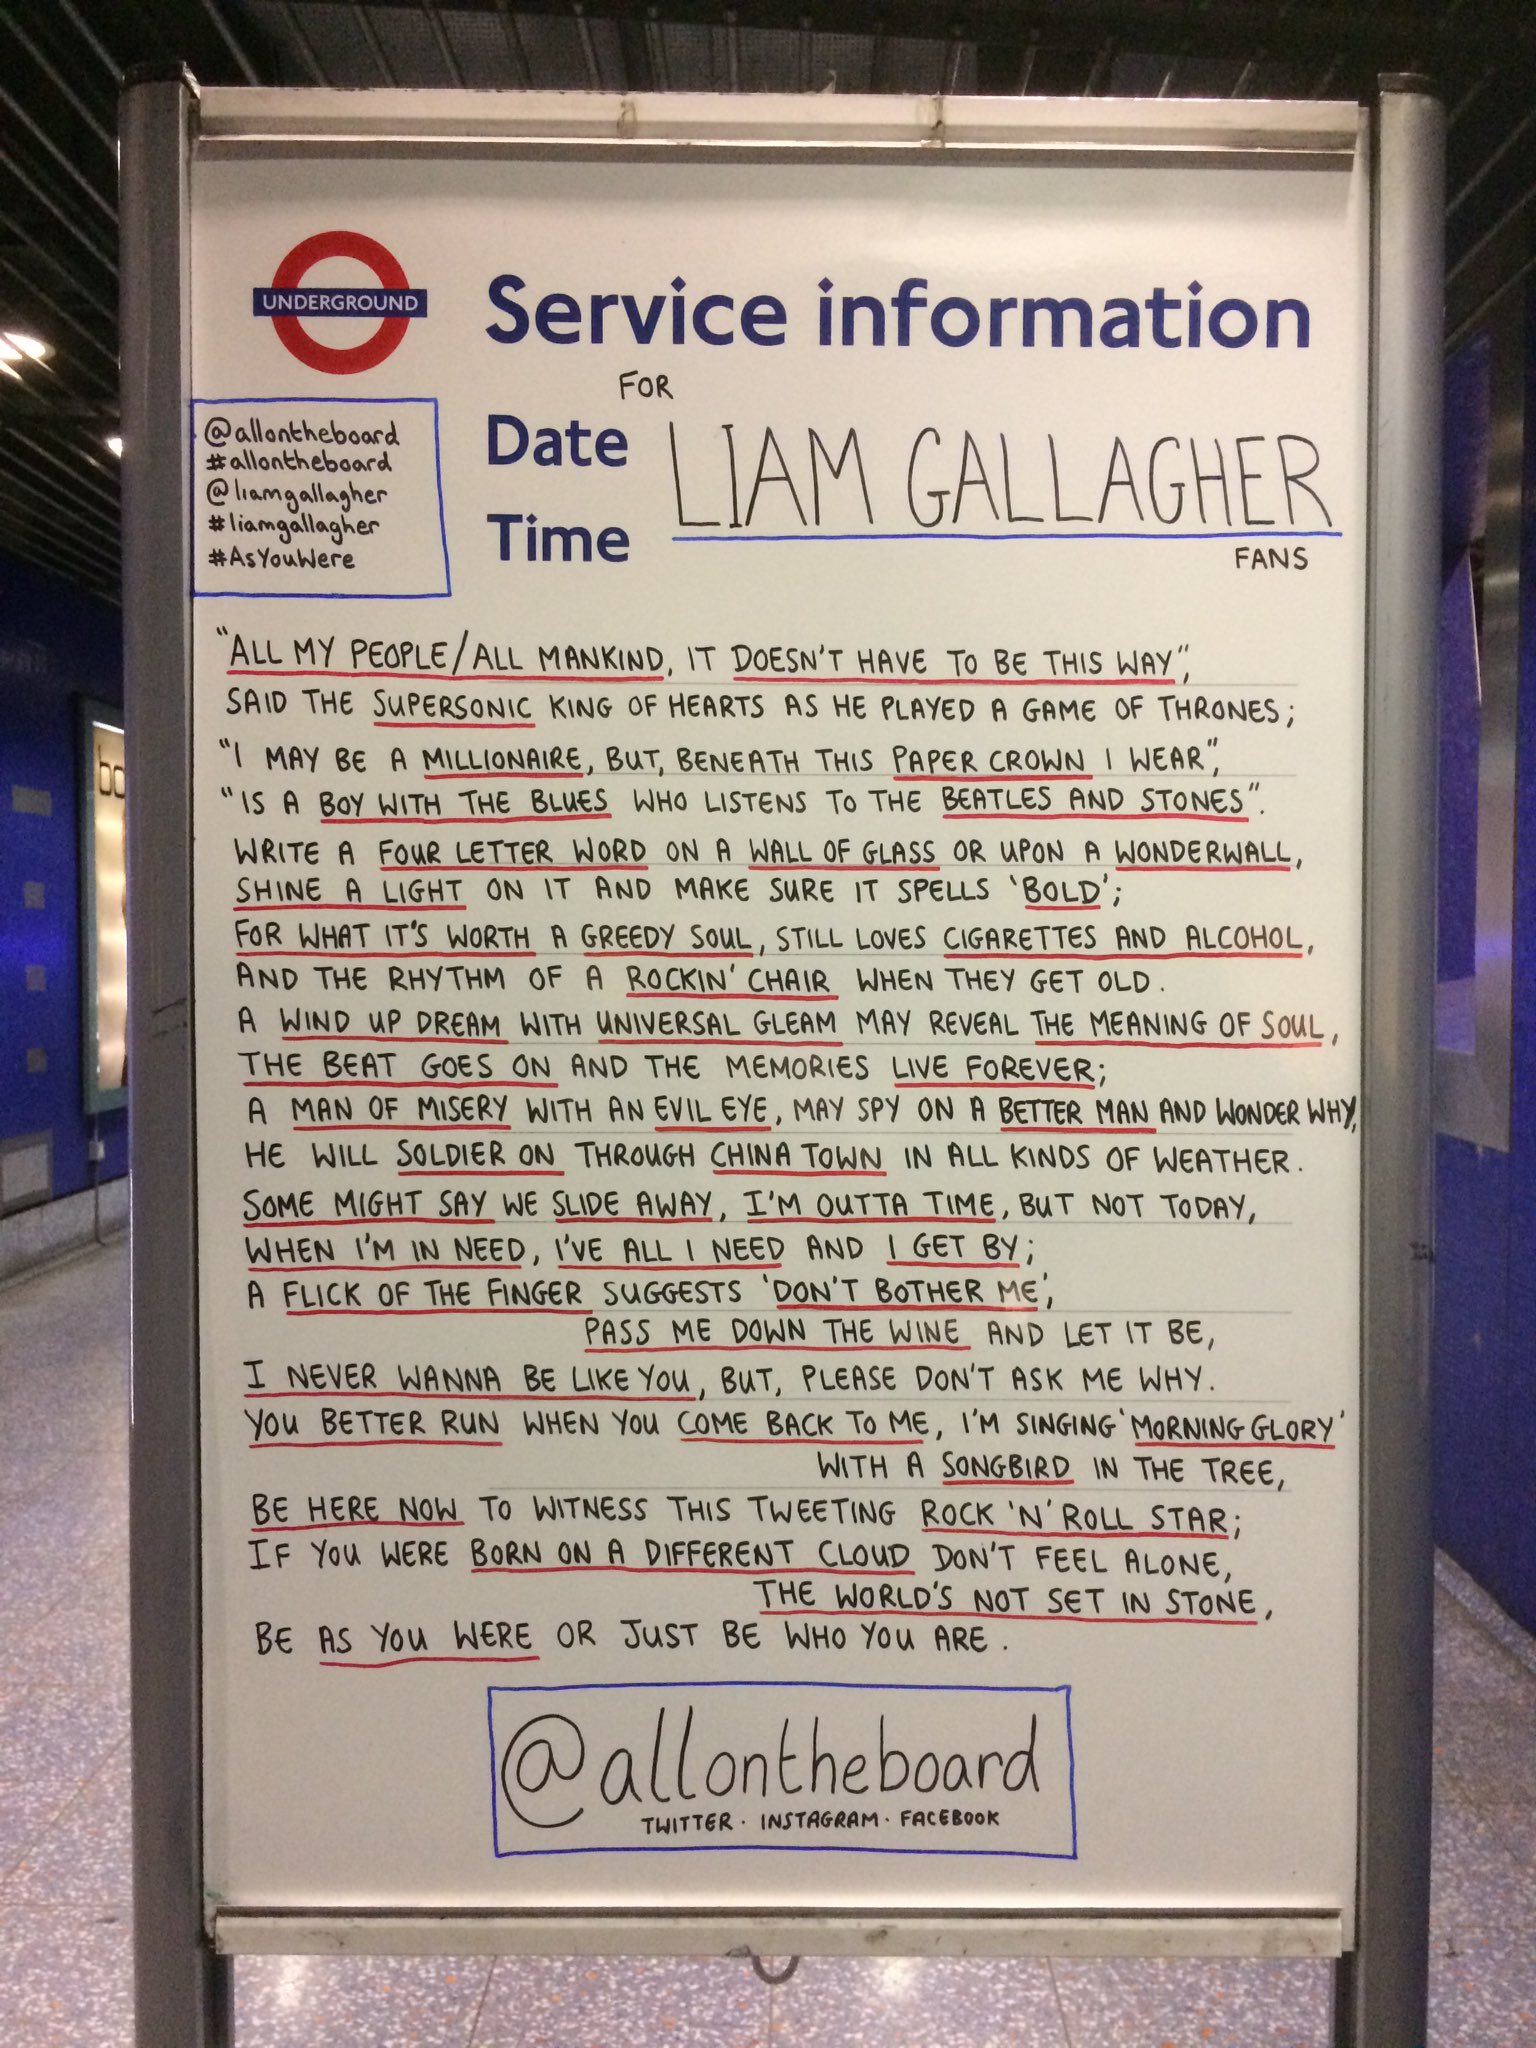 UNDERGROUND
Service information
FOR
Date
LIAM GALLAGHER
Time
FANS
@allontheboard
#allontheboard
@liamgallagher
#liamgallagher
#AsYouWere
"ALL MY PEOPLE/ALL MANKIND, IT DOESN'T HAVE TO BE THIS WAY",
SAID THE SUPERSONIC KING OF HEARTS AS HE PLAYED A GAME OF THRONES;
"I MAY BE A MILLIONAIRE, BUT, BENEATH THIS PAPER CROWN I WEAR",
"IS A BOY WITH THE BLUES WHO LISTENS TO THE BEATLES AND STONES".
WRITE A FOUR LETTER WORD ON A WALL OF GLASS OR UPON A WONDERWALL,
SHINE A LIGHT ON IT AND MAKE SURE IT SPELLS 'BOLD';
FOR WHAT IT'S WORTH A GREEDY SOUL, STILL LOVES CIGARETTES AND ALCOHOL,
AND THE RHYTHM OF A ROCKIN' CHAIR WHEN THEY GET OLD.
A WIND UP DREAM WITH UNIVERSAL GLEAM MAY REVEAL THE MEANING OF SOUL,
THE BEAT GOES ON AND THE MEMORIES LIVE FOREVER;
A MAN OF MISERY WITH AN EVIL EYE, MAY SPY ON A BETTER MAN AND WONDER WHY,
HE WILL SOLDIER ON THROUGH CHINA TOWN IN ALL KINDS OF WEATHER.
SOME MIGHT SAY WE SLIDE AWAY, I'M OUTTA TIME, BUT NOT TODAY,
WHEN I'M IN NEED, I'VE ALL I NEED AND I GET BY;
A FLICK OF THE FINGER SUGGESTS 'DON'T BOTHER ME',
PASS ME DOWN THE WINE AND LET IT BE,
I NEVER WANNA BE LIKE YOU, BUT, PLEASE DON'T ASK ME WHY.
YOU BETTER RUN WHEN YOU COME BACK TO ME, I'M SINGING 'MORNING GLORY'
WITH A SONGBIRD IN THE TREE,
BE HERE NOW TO WITNESS THIS TWEETING ROCK 'N' ROLL STAR;
IF YOU WERE BORN ON A DIFFERENT CLOUD DON'T FEEL ALONE,
THE WORLD'S NOT SET IN STONE,
BE AS YOU WERE OR JUST BE WHO YOU ARE.
@allontheboard
TWITTER · INSTAGRAM · FACEBOOK